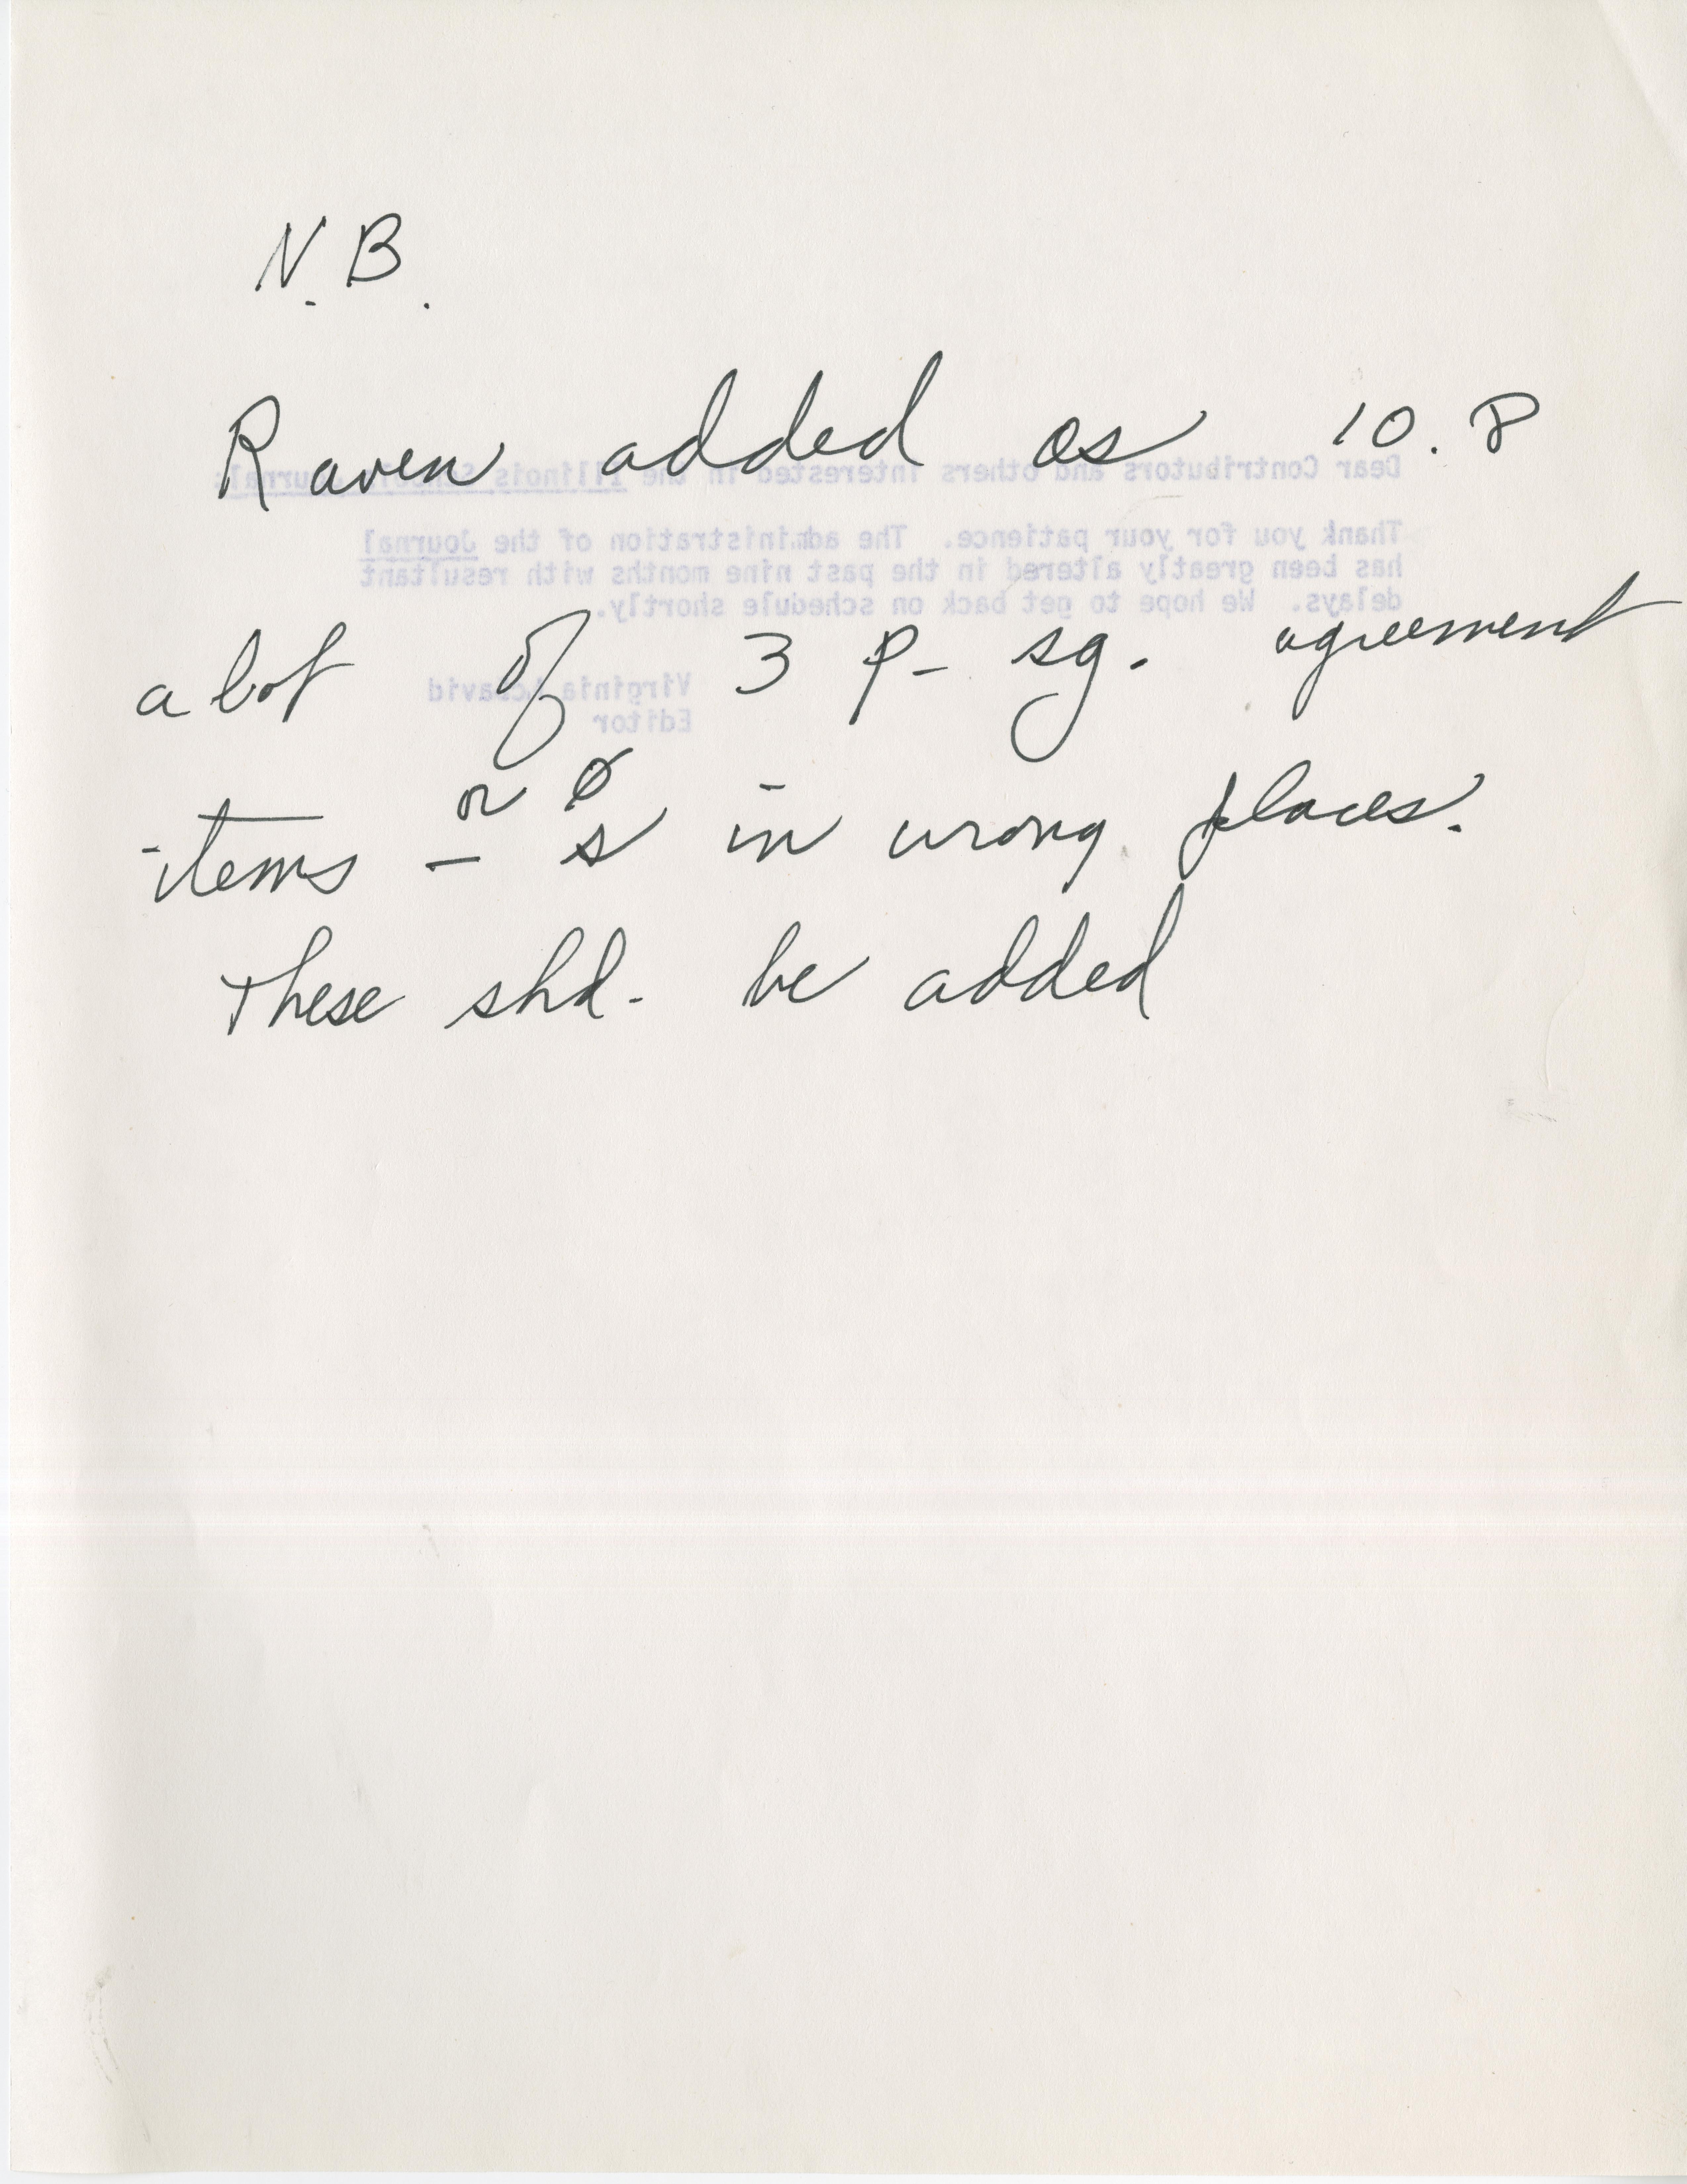 N.B.
Raven added as 10.8
Dear Contributors and others interested in the Illinois Schools Journal:
Thank you for your patience. The administration of the Journal
has been greatly altered in the past nine months with resultant
delays. We hope to get back on schedule shortly.
a lot of 3 p- sg. agreement
Virginia McDavid
Editor
or ø
items – s in wrong places.
These shd. be added